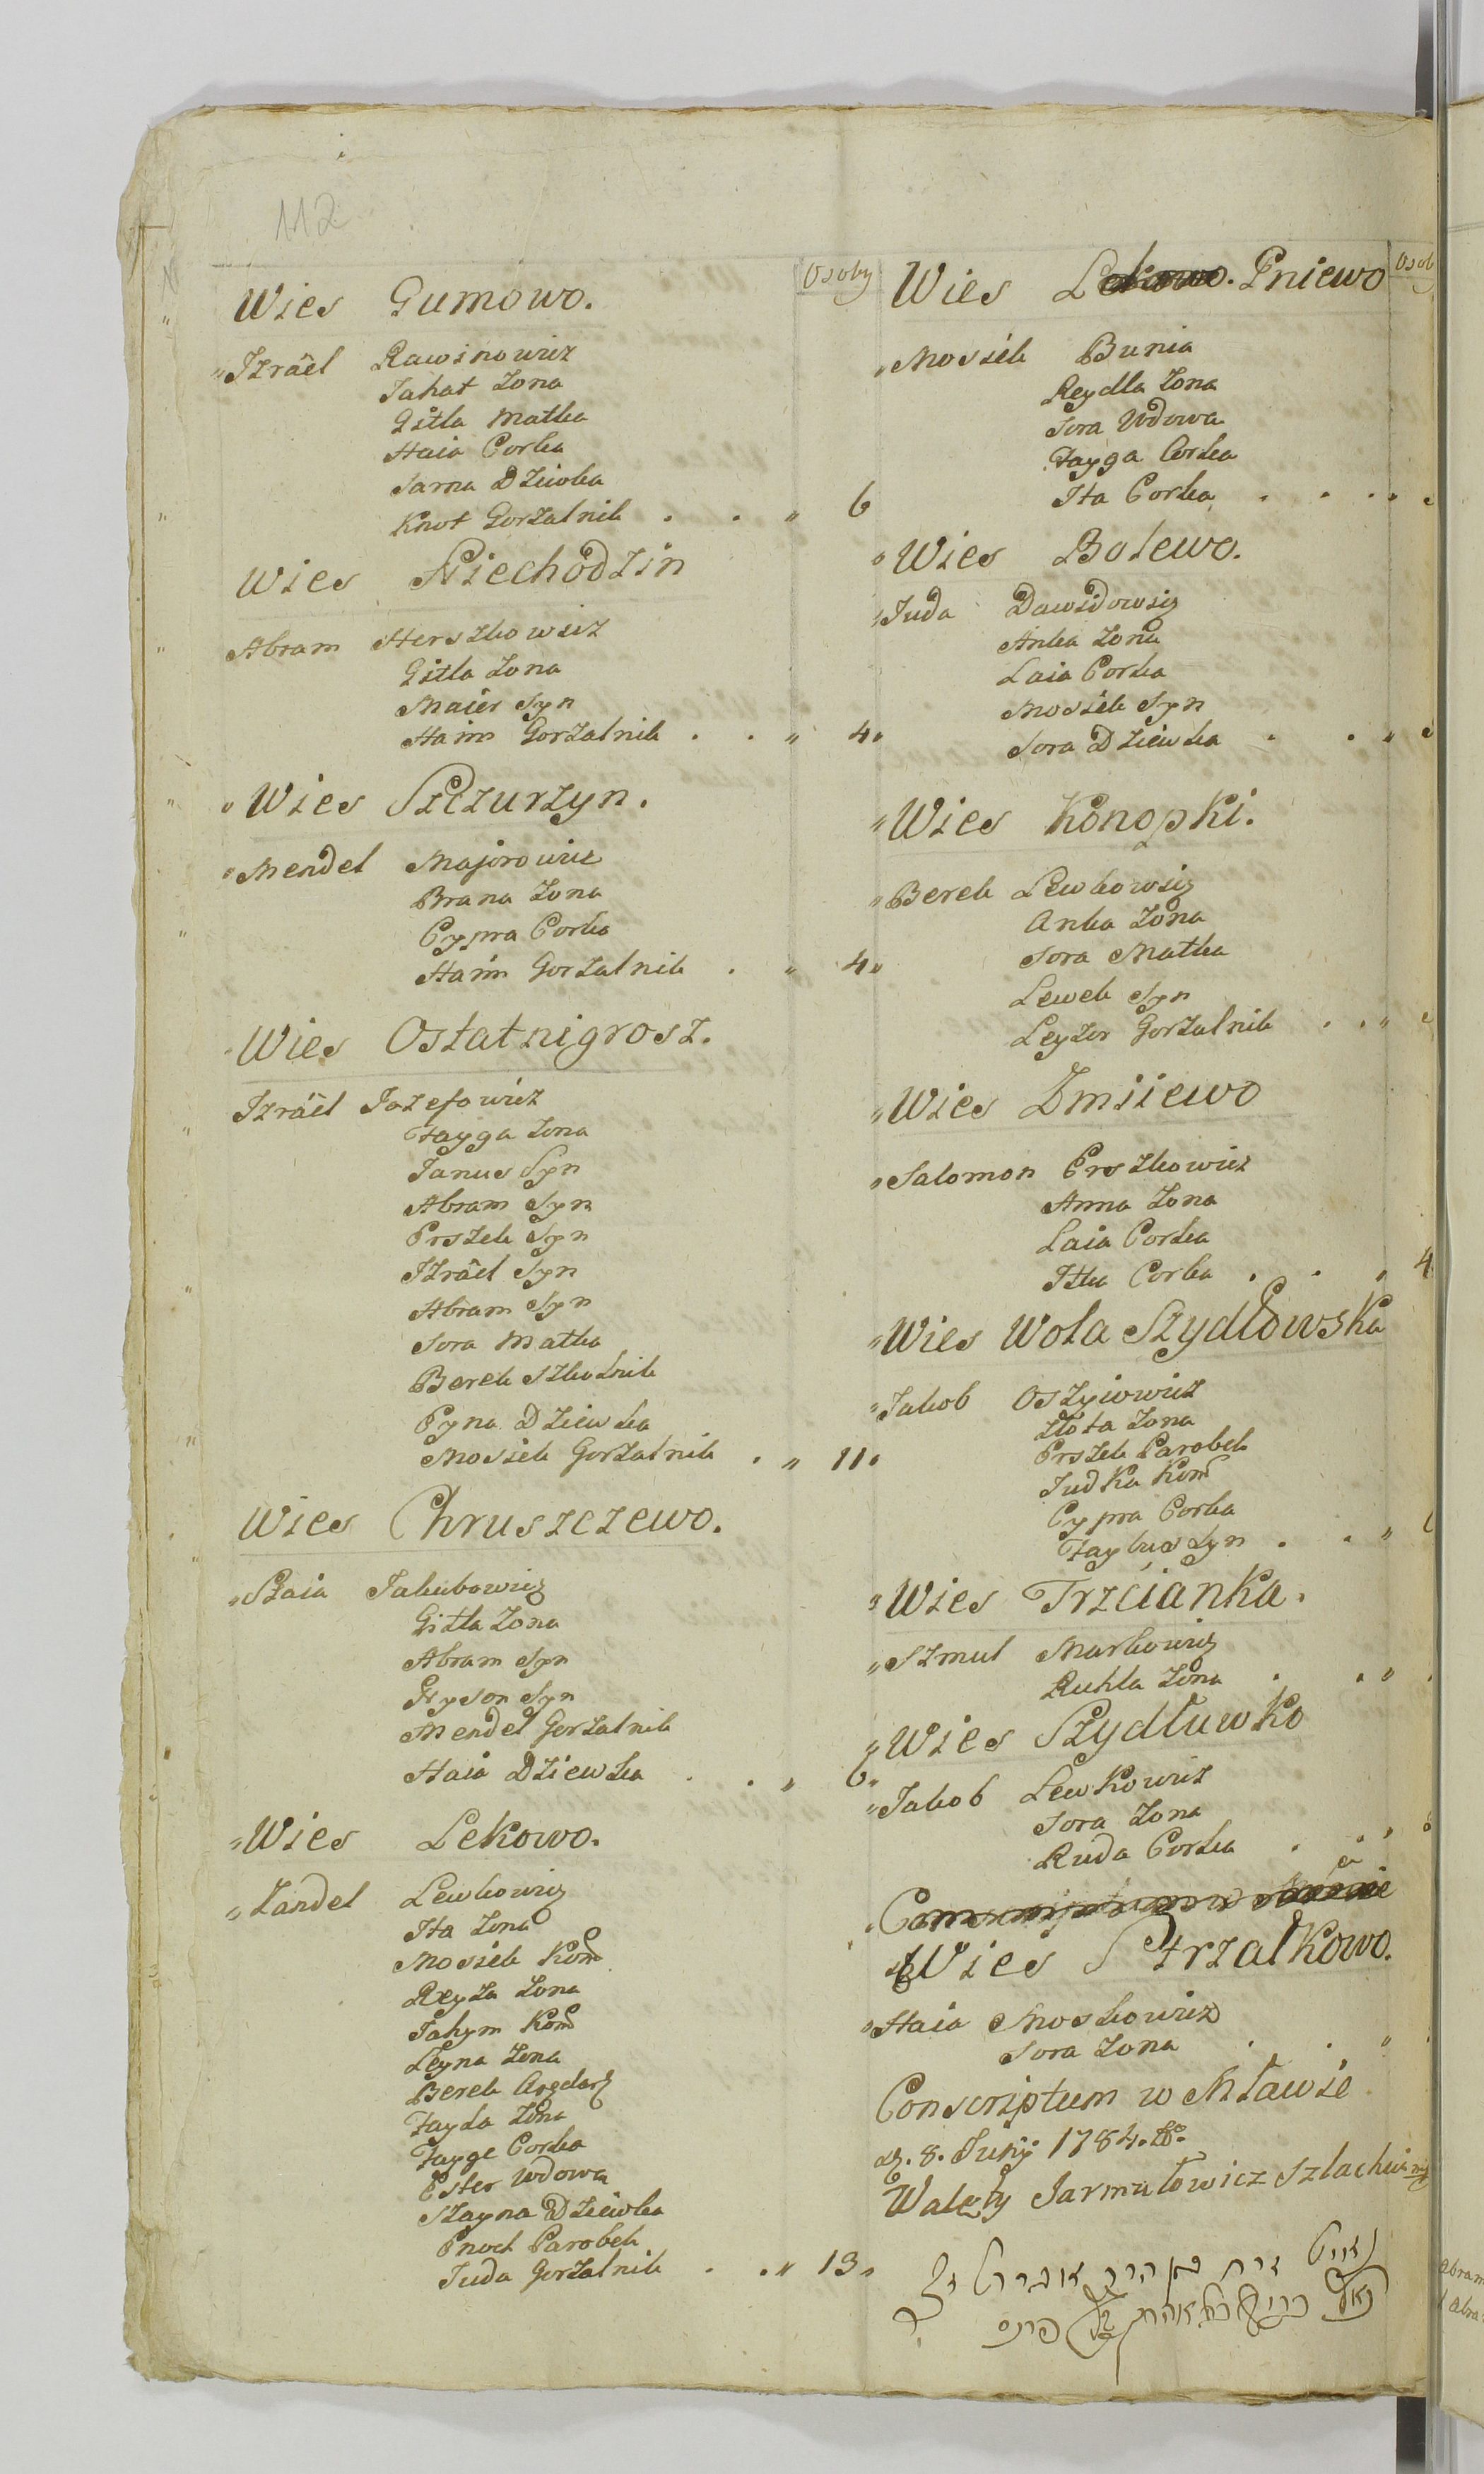 112
Osoby
Wies Gumowo.
Izräel Rawinowicz
Jahat Zona
Gitla Matka
Haia Corka
Sarna Dziewka
Knot Gorzalnik . . " 6
Wies Niechodzin
Abram Herszkowicz
Gitla Zona
Maier Syn
Haim Gorzalnik . . " 4"
Wies Szczurzyn.
Mendel Majorowicz
Brana Zona
Cypra Corka
Haim Gorzalnik . " 4"
Wies Ostatnigrosz.
Izräel Jozefowicz
Fayga Zona
Janus Syn
Abram Syn
Erszek Syn
Izräel Syn
Abram Syn
Sora Matka
Berek Szkolnik
Cyna Dziewka
Mosiek Gorzalnik . " 11"
Wies Chruszczewo.
Szaia Jakubowicz
Gitla Zona
Abram Syn
Hyson Syn
Mendel Gorzalnik
Haia Dziewka . . " 6"
Wies Lekowo.
Zandel Lewkowicz
Ita Zona
Mosiek Kom
Reyza Zona
Jahym Kom
Leyna Zona
Berek Arędarz
Fayda Zona
Fayge Corka
Ester Wdowa
Szayna Dziewka
Enoch Parobek
Juda Gorzalnik . . " 13"
Osob
Wies Lekowo. Pniewo
Mosiek Bunia
Reydla Zona
Sora Wdowa
Fayga Corka
Ita Corka . . . .
Wies Bolewo.
Juda Dawidowicz
Anka Zona
Laia Corka
Mosiek Syn
Sora Dziewka . . "
Wies Konopki.
Berek Lewkowicz
Anka Zona
Sora Matka
Lewek Syn
Leyzor Gorzalnik . . "
Wies Zmiiewo
Salomon Erszkowicz
Anna Zona
Laia Corka
Itka Corka . . " 4
Wies Wola Szydłowska
Jakob Oszyiowicz
Złota Zona
Erszek Parobek
Judka Kom
Cypra Corka
Faybus Syn . . "
Wies Trzcianka.
Szmul Markowicz
Ruhla Zona . . "
Wies Szydłuwko
Jakob Lewkowicz
Sora Zona
Ruda Corka . . "
Wies Strzałkowo.
Haia Moskowicz
Sora Zona . . "
Conscriptum w Mławie
d. 8. Junij 1784. Ao.
Walęty Jarmułowicz Szlachci